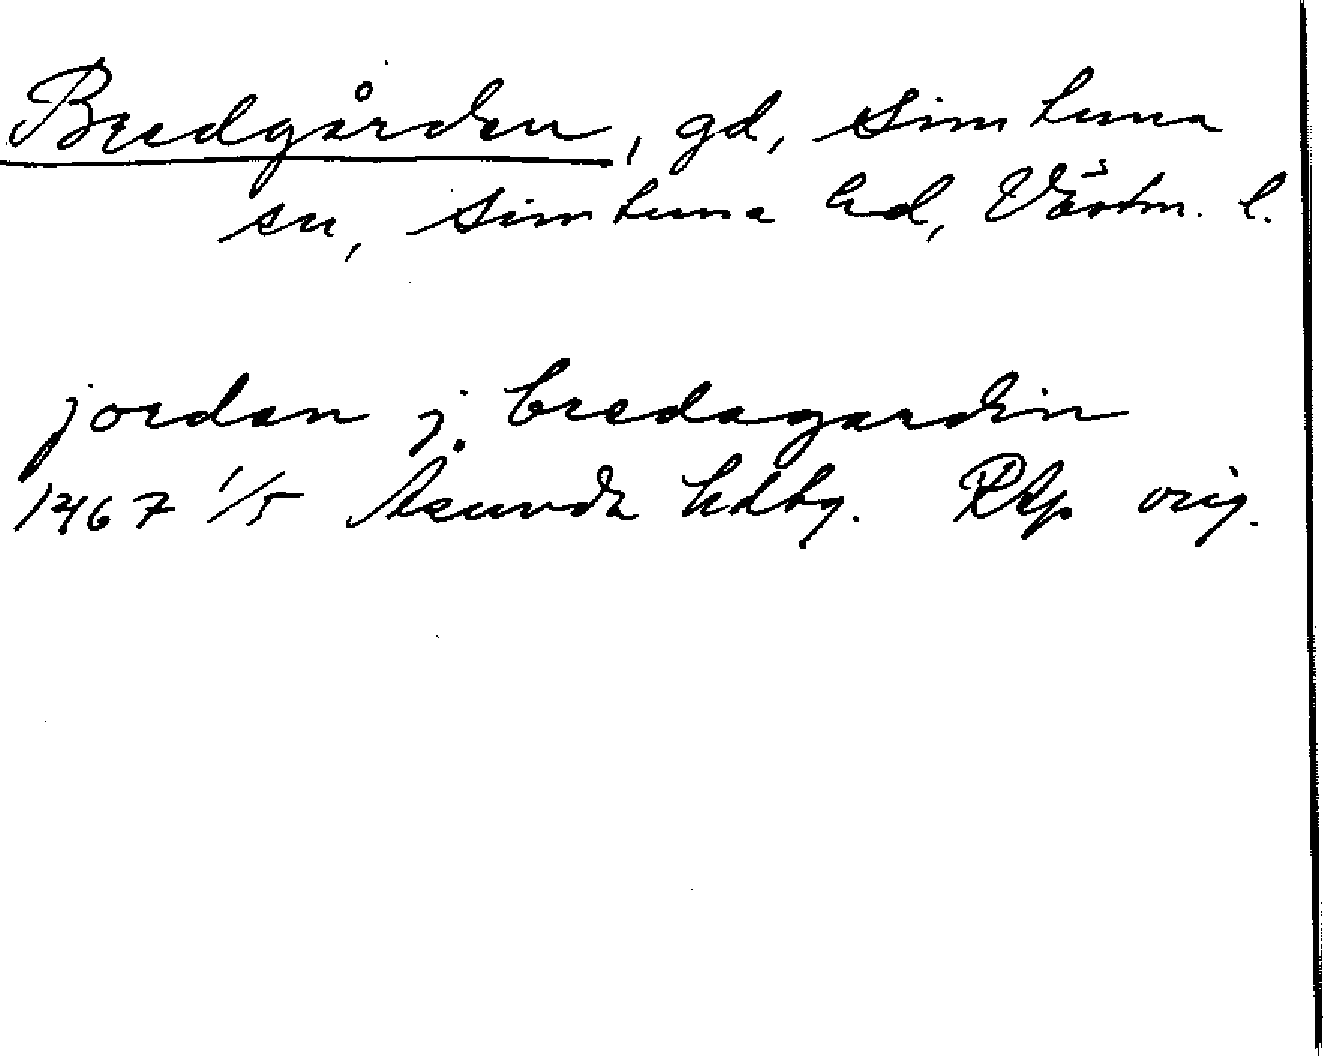 Bredgården, gd, Simtuna
sn, Simtuna hd, Västm. l.
jordan j bredagardin
1467 1/5 Åsunda hdtg. RAp orig.